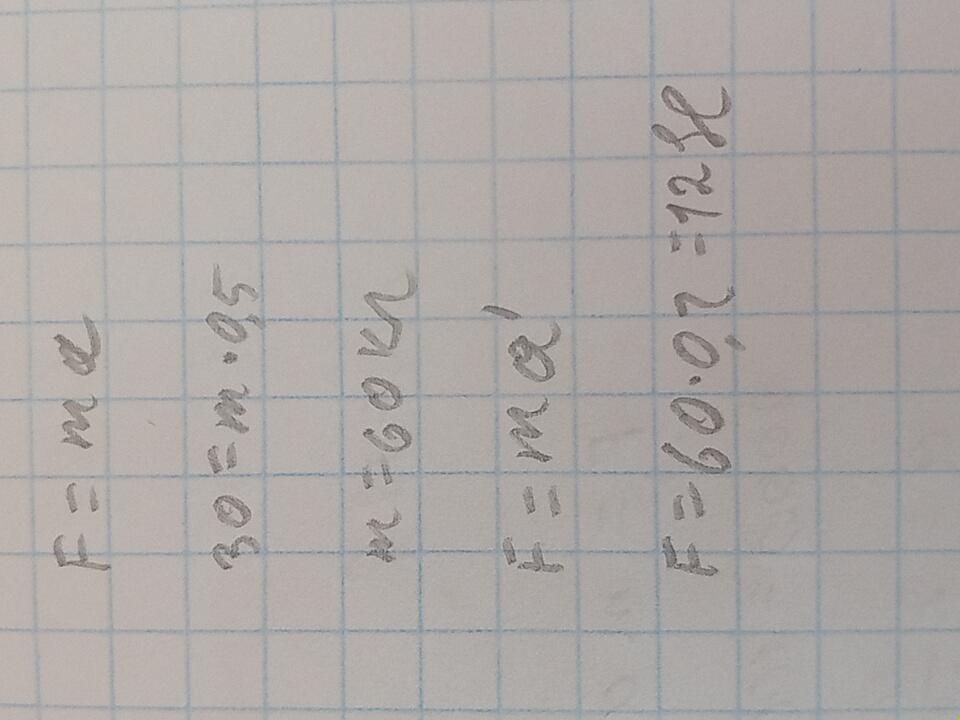 F = ma
30 = m · 0,5
m = 60 кг
F = ma'
F = 60 · 0,2 = 12 Н